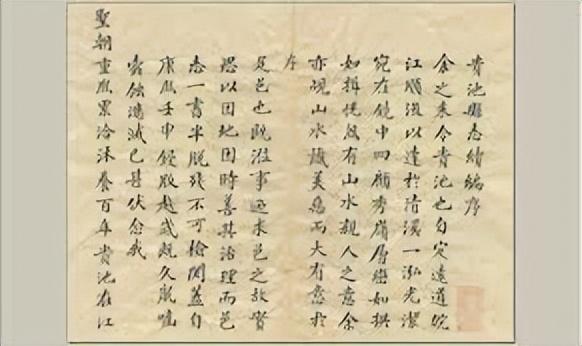 貴池縣志續編序
余之來令貴池也自定遠道皖
江順流以達於清溪一泓光潔
宛在鏡中四顧秀嶺層巒如拱
如揖恍然有山水親人之意余
亦覘山水識美惡而大有意於
序
是邑也既涖事迺求邑之故實
思以因地因時善其治理而邑
志一書半脫殘不可檢閱蓋自
康熙壬申錢版越歲既久鼠嚙
蝕漶滅已甚伏念我
聖朝重熙累洽涵養百年貴池在江